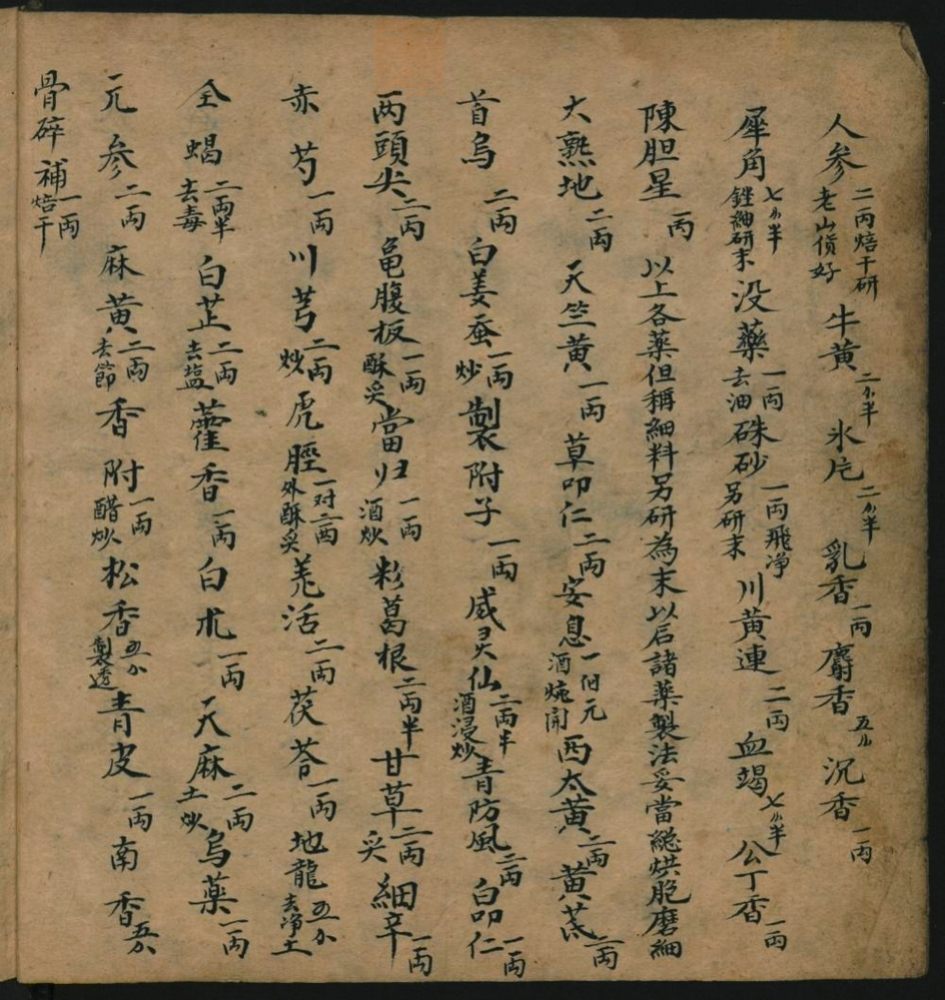 人参二两焙干研老山货好 牛黄二小半 氷片二小半 乳香一两 麝香五小 沉香一两
犀角七小半銼細研末 没藥一两去油 硃砂一两飛净另研末 川黄連二两 血竭七小半 公丁香一两
陳胆星一两 以上各薬但稱細料另研為末以后諸薬製法妥當総烘脆磨細
大熟地二两 天竺黄一两 草叩仁二两 安息一個元酒炖開 西大黄二两 黄芪二两
首烏二两 白姜蚕一两炒 製附子一两 威灵仙二两半酒浸炒 青防風二两 白叩仁一两
两頭尖二两 亀腹板一两酥炙 當归一两酒炒 粉葛根二两半 甘草二两炙 細辛一两
赤芍一两 川芎二两炒 虎脛一对二两外酥炙 羌活二两 茯苓一两 地龍五小去净土
全蝎二两半去毒 白芷二两去塩 藿香一两 白朮一两 天麻二两土炒 烏薬一两
元参二两 麻黄二两去節 香附一两醋炒 松香五小製透 青皮一两 南香五小
骨碎補一两焙干